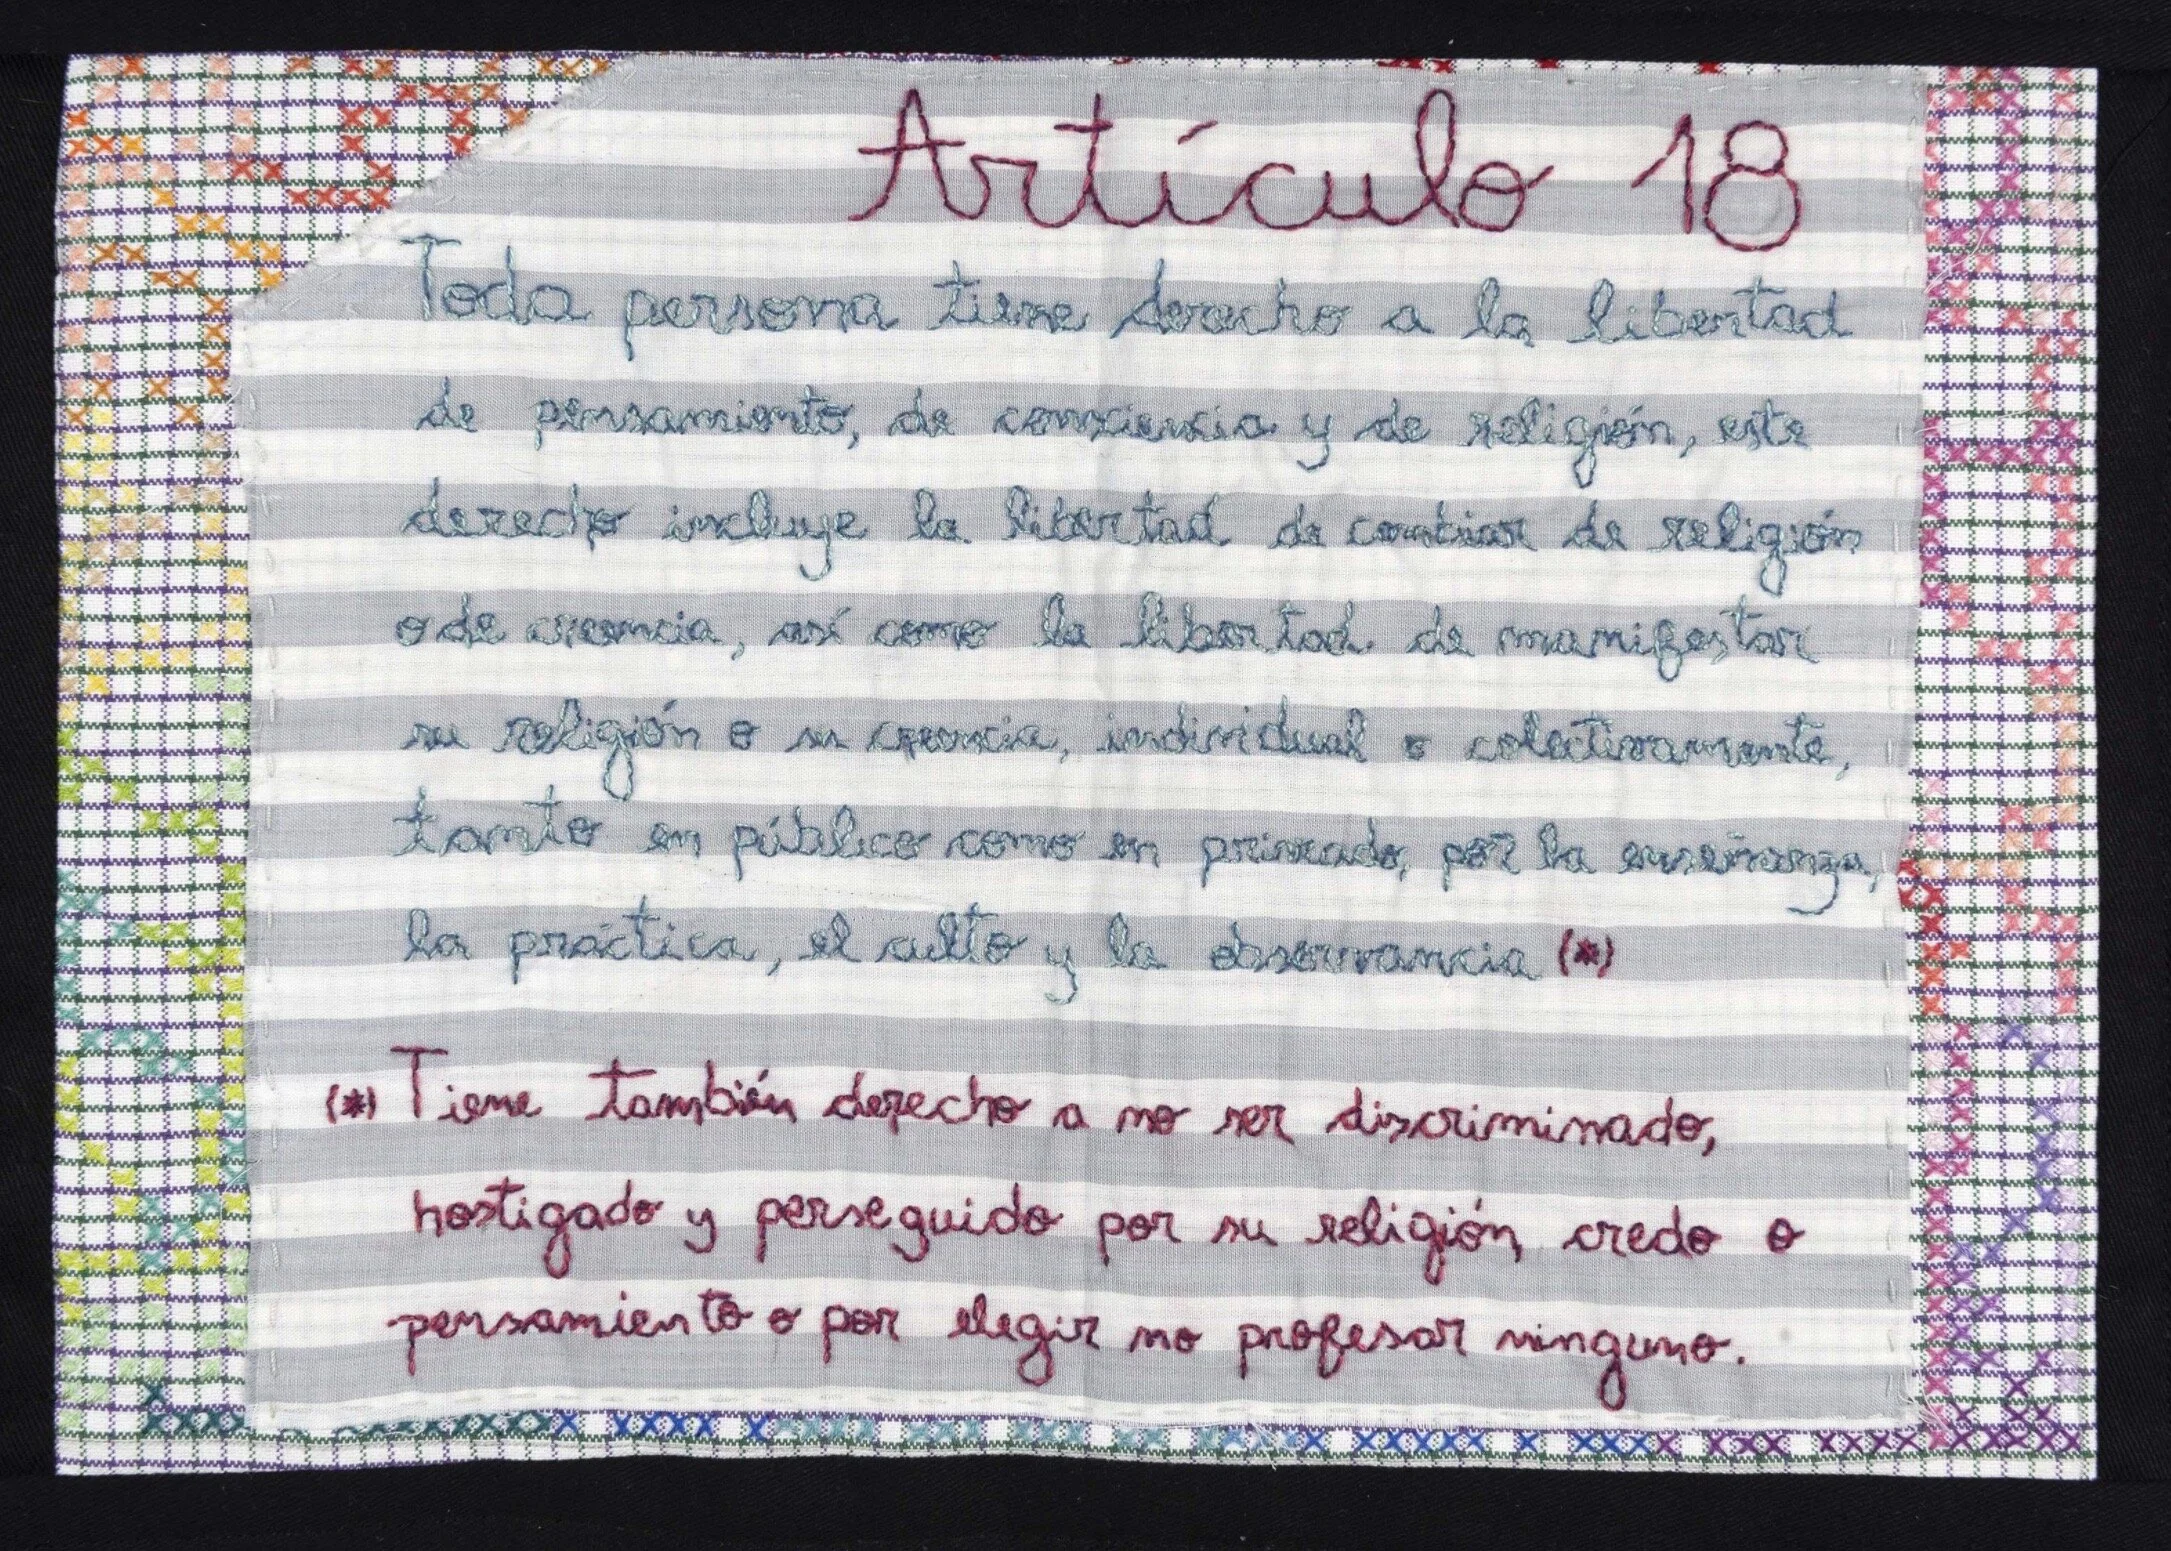 Artículo 18
Toda persona tiene derecho a la libertad
de pensamiento, de consciencia y de religión, este
derecho incluye la libertad de cambiar de religión
o de creencia, así como la libertad de manifestar
su religión o su creencia, individual o colectivamente,
tanto en público como en privado, por la enseñanza,
la práctica, el culto y la observancia (*)
(*) Tiene también derecho a no ser discriminado,
hostigado y perseguido por su religión, credo o
pensamiento o por elegir no profesar ninguno.